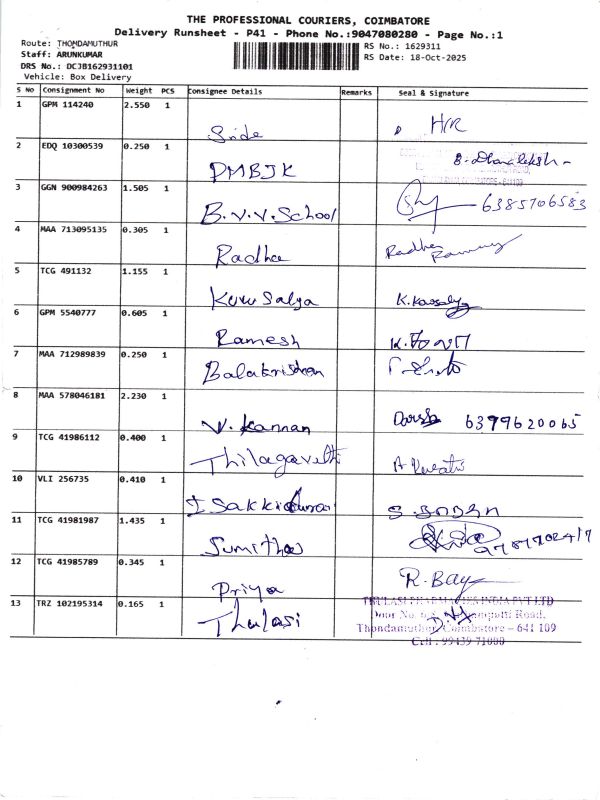 THE PROFESSIONAL COURIERS, COIMBATORE
Delivery Runsheet - P41 - Phone No.:9047080280 - Page No.:1
Route: THONDAMUTHUR
Staff: ARUNKUMAR
DRS No.: DCJB162931101
Vehicle: Box Delivery
RS No.: 1629311
RS Date: 18-Oct-2025
S No Consignment No Weight PCS Consignee Details Remarks Seal & Signature
1 GPM 114240 2.550 1
H/R
2 EDQ 10300539 0.250 1
PMBJK
3 GGN 900984263 1.505 1
B.V.V.School 6385706583
4 MAA 713095135 0.305 1
Radha Radha
5 TCG 491132 1.155 1
6 GPM 5540777 0.605 1
Ramesh
7 MAA 712989839 0.250 1
Balakrishnan
8 MAA 578046181 2.230 1
V. Kannan 6379620065
9 TCG 41986112 0.400 1
10 VLI 256735 0.410 1
11 TCG 41981987 1.435 1
Sumitha
12 TCG 41985789 0.345 1
Priya R.Bay
13 TRZ 102195314 0.165 1
Thulasi
INDIA PVT LTD
Door No. Road,
Thondamuthur, Coimbatore - 641 109
Cell : 99439 71000